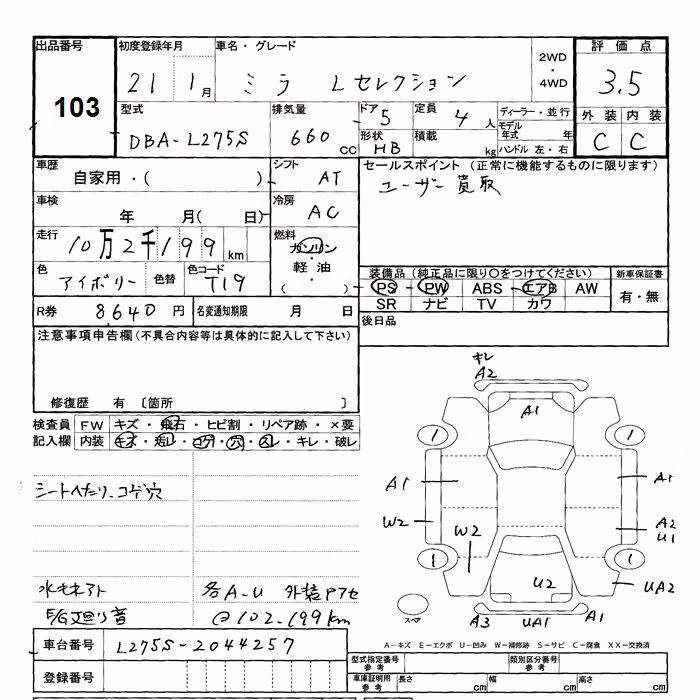 出品番号 初度登録年月 車名・グレード 2WD・4WD 評価点
103 21 1月 ミラ Lセレクション 3.5
型式 排気量 ドア 5 定員 4人 ディーラー・並行 外装 内装
DBA-L275S 660cc 形状 HB 積載 kg モデル年式 年 ハンドル 左・右 C C
車歴 自家用・( ) シフト AT セールスポイント(正常に機能するものに限ります)
ユーザー買取
車検 年 月( 日) 冷房 AC
走行 10万2千199km 燃料 ガソリン・軽油・( )
色 アイボリー 色替 色コード T19
装備品(純正品に限り○をつけてください) 新車保証書
PS PW ABS エアB AW 有・無
SR ナビ TV カワ
R券 8640円 名変通知期限 月 日 後日品
注意事項申告欄(不具合内容等は具体的に記入して下さい)
修復歴 有 〔箇所 〕
検査員 FW キズ・飛石・ヒビ割・リペア跡・×要
記入欄 内装 キズ・汚レ・コゲ・穴・スレ・キレ・破レ
シートヘたり、コゲ穴
水モネアト 各A-U 外装
E/G廻り音 @102.199km
キレ
A2
A1
1 1
A1 A1
W2 W2 A2
U1
1 1
U2 UA2
スペア A3 UA1 A1
A-キズ E-エクボ U-凹み W-補修跡 S-サビ C-腐食 XX-交換済
車台番号 L275S-2044257
登録番号
型式指定番号 参考 類別区分番号 参考
車庫証明用 参考 長さ cm 幅 cm 高さ cm